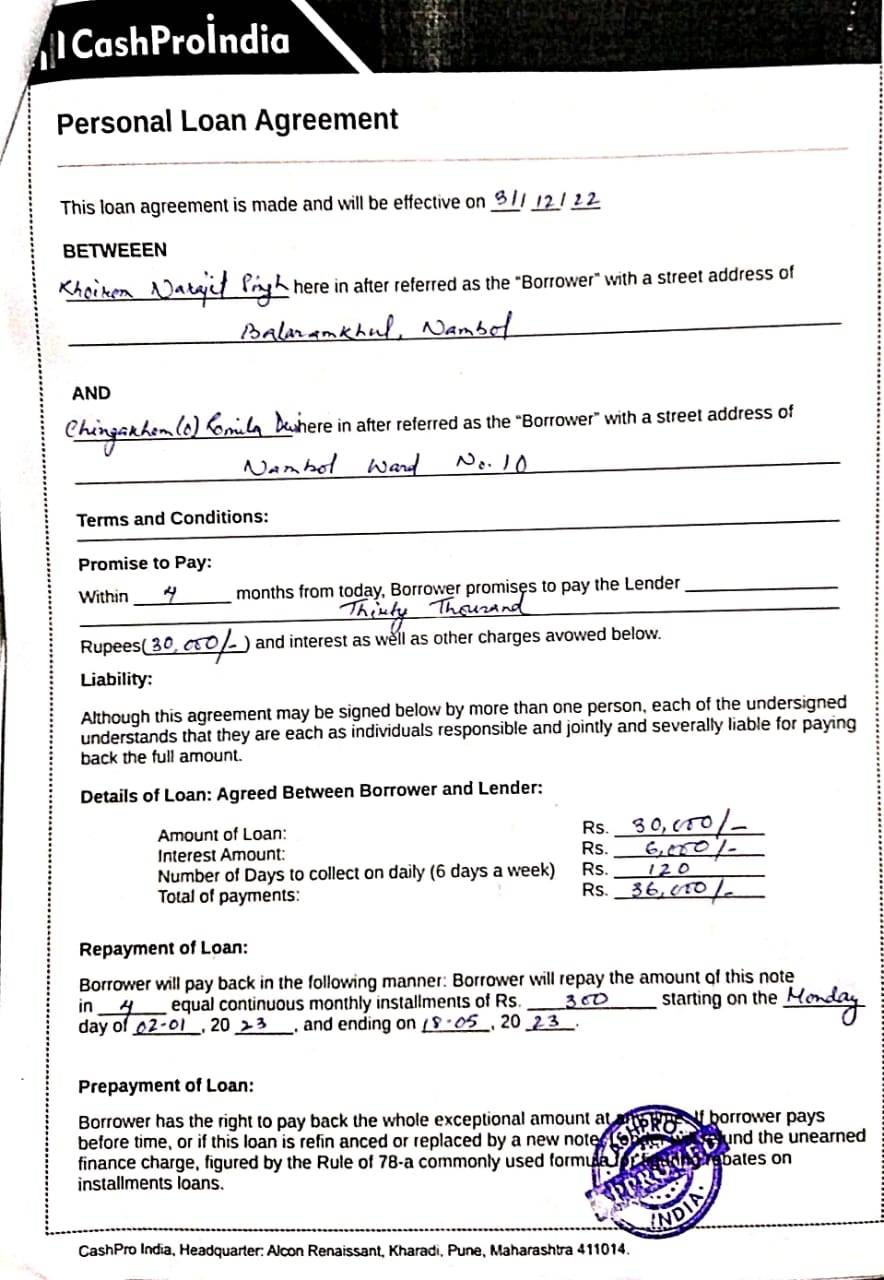 CashProIndia
Personal Loan Agreement
This loan agreement is made and will be effective on 31/12/22
BETWEEEN
Khoirom Narajit Singh here in after referred as the “Borrower” with a street address of
Balaramkhul, Nambol
AND
Chingakham (o) Romila Devi here in after referred as the “Borrower” with a street address of
Nambol Ward No. 10
Terms and Conditions:
Promise to Pay:
Within 4 months from today, Borrower promises to pay the Lender
Thirty Thousand
Rupees(30,000/-) and interest as well as other charges avowed below.
Liability:
Although this agreement may be signed below by more than one person, each of the undersigned
understands that they are each as individuals responsible and jointly and severally liable for paying
back the full amount.
Details of Loan: Agreed Between Borrower and Lender:
Amount of Loan: Rs. 30,000/-
Interest Amount: Rs. 6,000/-
Number of Days to collect on daily (6 days a week) Rs. 120
Total of payments: Rs. 36,000/-
Repayment of Loan:
Borrower will pay back in the following manner: Borrower will repay the amount of this note
in 4 equal continuous monthly installments of Rs. 300 starting on the Monday
day of 02-01, 20 23, and ending on 18-05, 20 23.
Prepayment of Loan:
Borrower has the right to pay back the whole exceptional amount at any time. If borrower pays
before time, or if this loan is refin anced or replaced by a new note, Lender will refund the unearned
finance charge, figured by the Rule of 78-a commonly used formula for figuring rebates on
installments loans.
CASHPRO
APPROVED
INDIA
CashPro India, Headquarter: Alcon Renaissant, Kharadi, Pune, Maharashtra 411014.